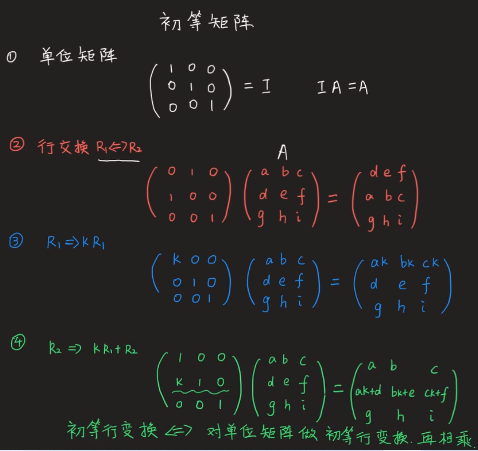 初等矩阵
① 单位矩阵
( 1 0 0
0 1 0
0 0 1 ) = I    I A = A
② 行交换 R₁⇔R₂
A
( 0 1 0
1 0 0
0 0 1 ) ( a b c
d e f
g h i ) = ( d e f
a b c
g h i )
③ R₁⇒kR₁
( k 0 0
0 1 0
0 0 1 ) ( a b c
d e f
g h i ) = ( ak bk ck
d e f
g h i )
④ R₂ ⇒ kR₁+R₂
( 1 0 0
k 1 0
0 0 1 ) ( a b c
d e f
g h i ) = ( a b c
ak+d bk+e ck+f
g h i )
初等行变换 ⇔ 对单位矩阵做初等行变换.再相乘.